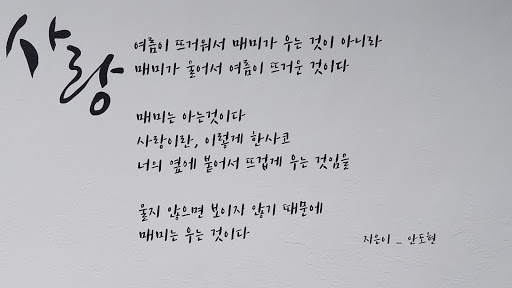 사랑
여름이 뜨거워서 매미가 우는 것이 아니라
매미가 울어서 여름이 뜨거운 것이다
매미는 아는것이다
사랑이란, 이렇게 한사코
너의 옆에 붙어서 뜨겁게 우는 것임을
울지 않으면 보이지 않기 때문에
매미는 우는 것이다
지은이 _ 안도현